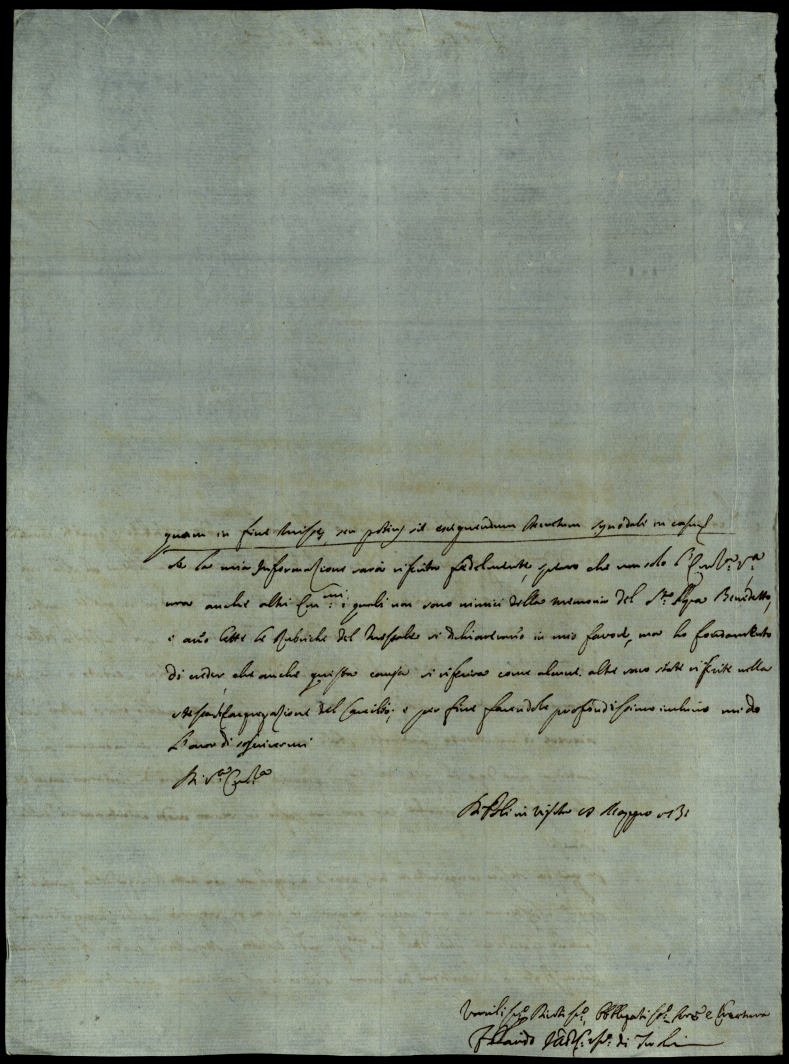 quam in fine Missæ, seu potius sit exequendum Decretum synodali in casu
Se la mia Informazione sarà riferita fedelmente, spero che non solo l'Em.za V.a
ma anche altri Em.mi i quali non sono nimici della memoria del S.to Papa Benedetto,
e anno lette le Rubriche del Messale si dichiareranno in mio favore, ma ho fondamento
di creder che anche questa causa si riferirà come alcune altre sono state riferite nella
stessa Congregazione del Concilio, e per fine facendole profondissimo inchino mi do
l'onor di sottoscrivermi
Di V.a Em.za
Di in Visita Maggio
Umiliss.o Devotiss.o Obbligatiss.o Serv.e e Creatura
di